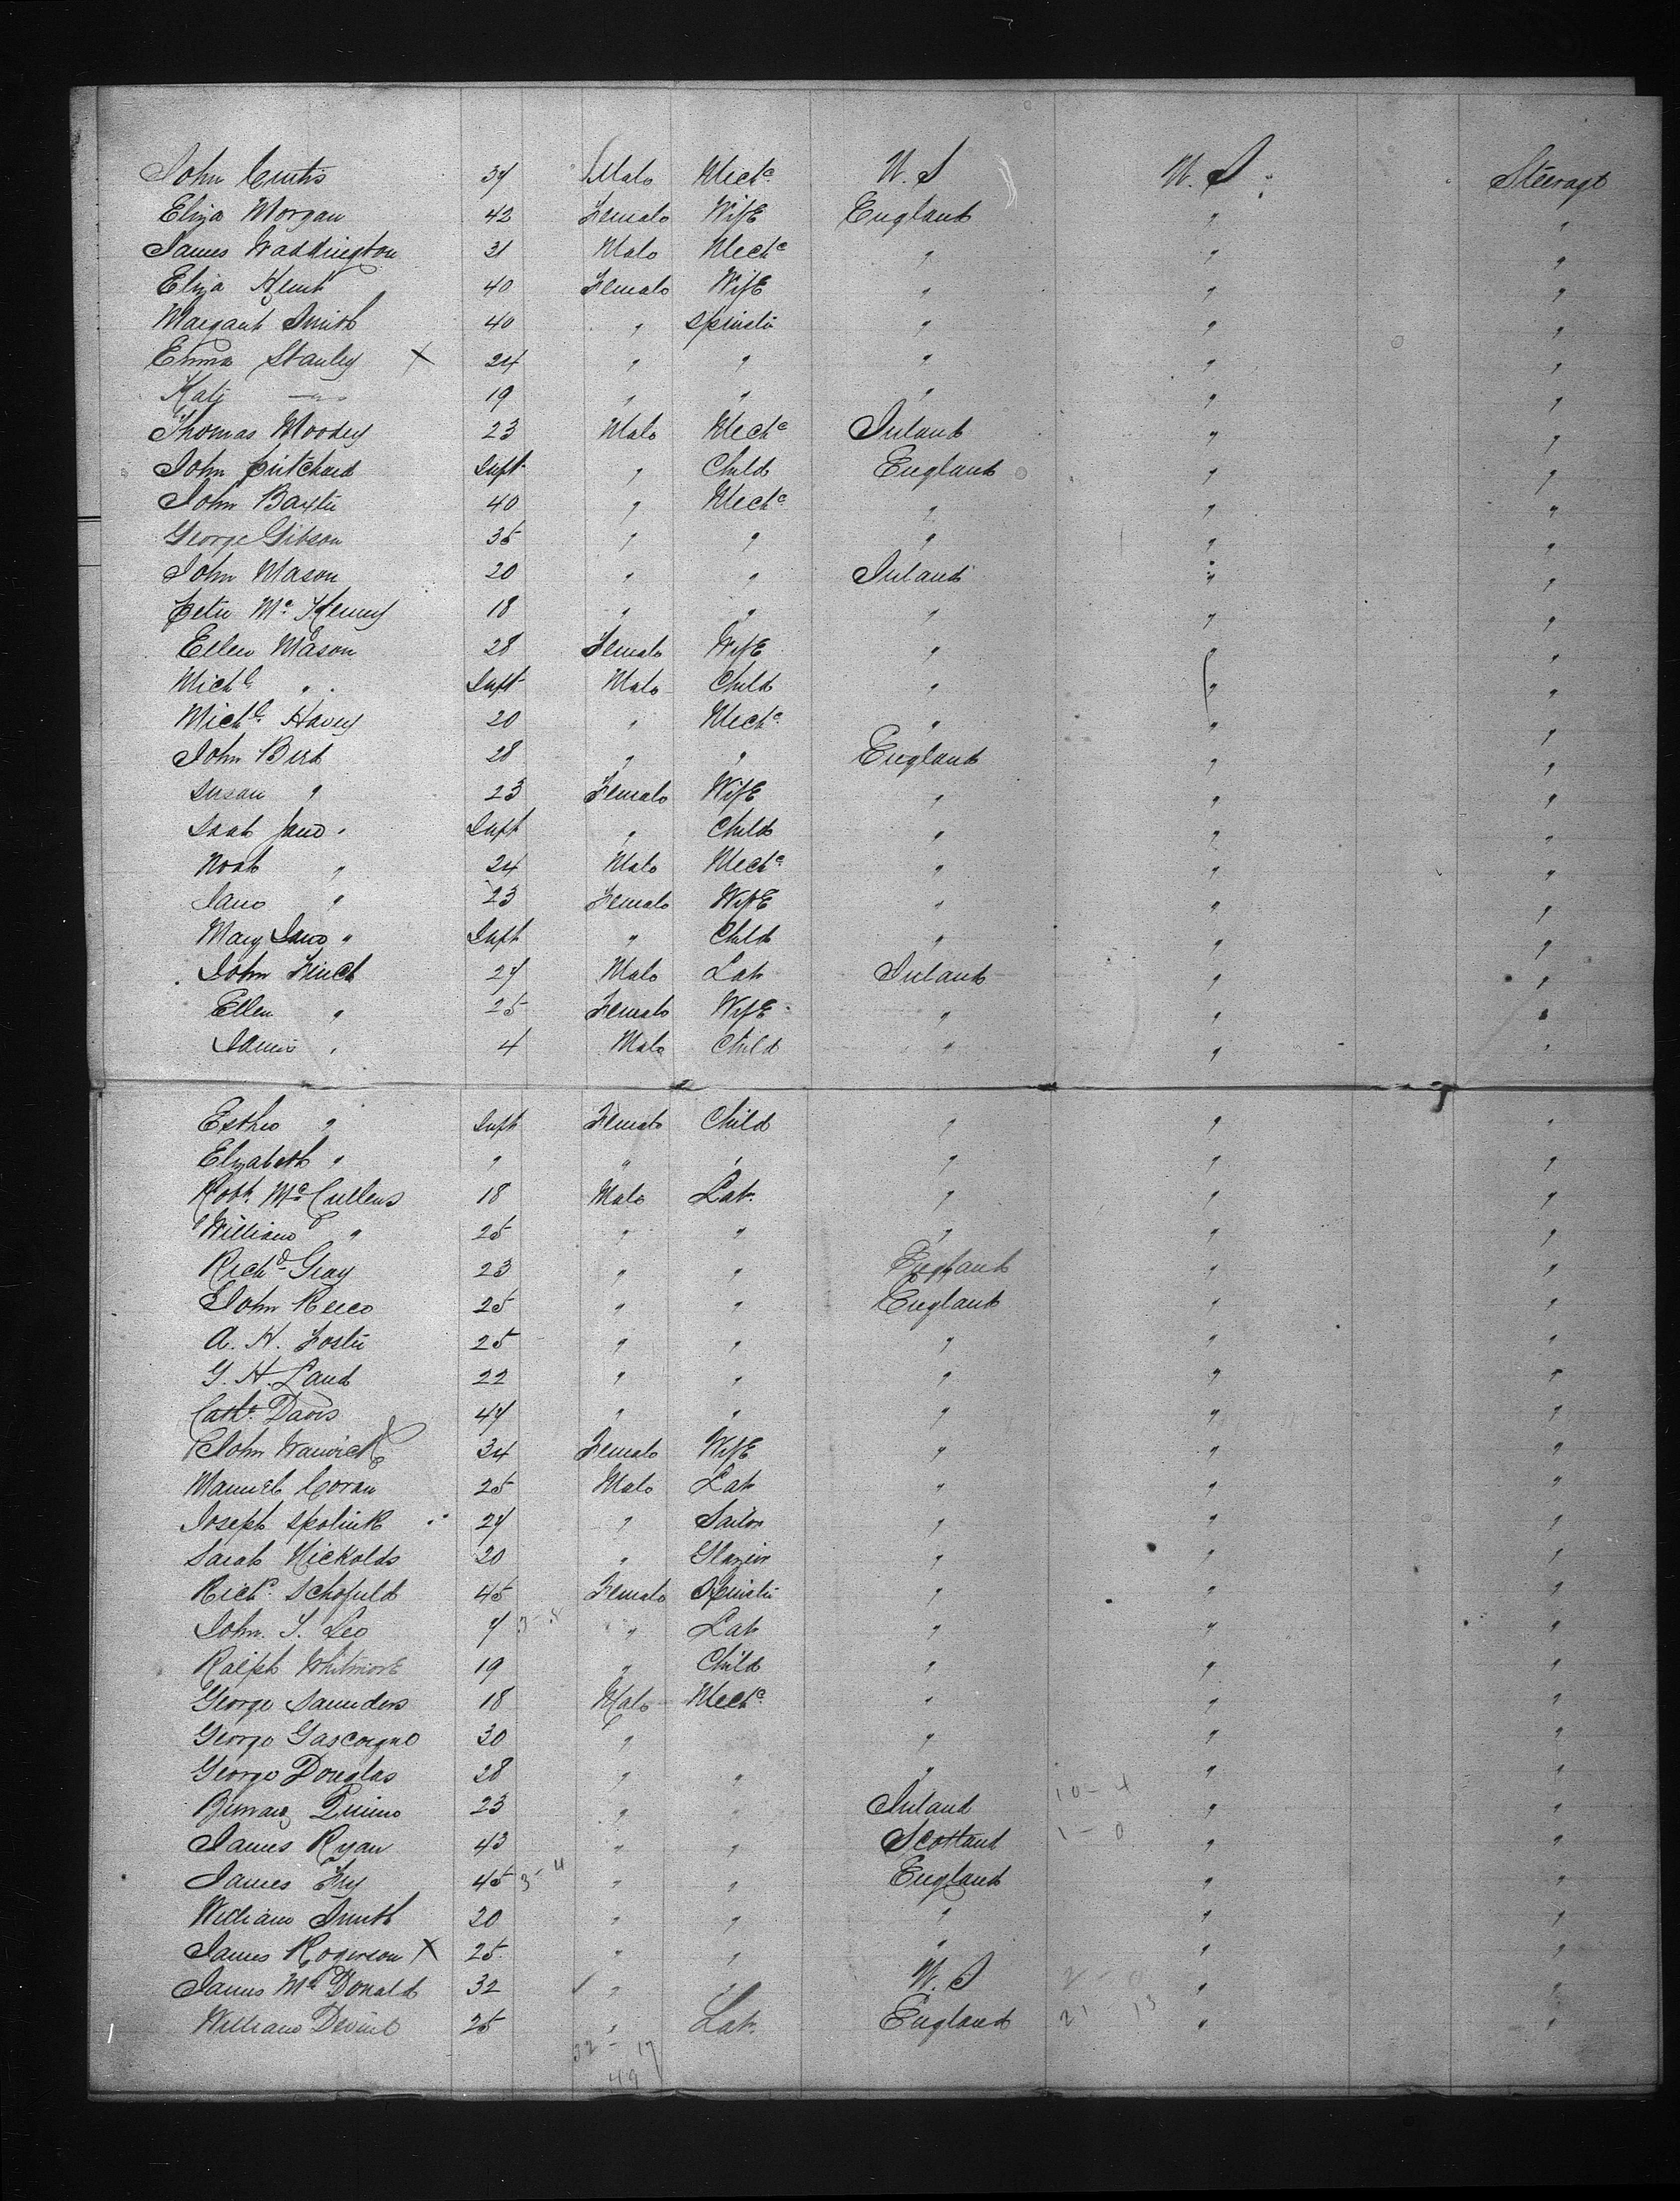 John Curtis 37 Male Mechc U. S U. S Steerage
Eliza Morgan 42 Female Wife England " "
James Waddington 31 Male Mechc " " "
Eliza Hunt 40 Female Wife " " "
Margant Smith 40 " Spinstr " " "
Emma Stanley X 24 " " " " "
Kate —"— 19 " " " " "
Thomas Moodey 23 Male Mechc Ireland " "
John Pritchard Inft " Child England " "
John Baxter 40 " Mechc " " "
George Gibson 35 " " " " "
John Mason 20 " " Ireland " "
Peter Mc Kenny 18 " " " " "
Ellen Mason 28 Female Wife " " "
Michl " Inft Male Child " " "
Michl Havey 20 " Mechc " " "
John Bird 28 " " England " "
Susan " 23 Female Wife " " "
Sarah Jane " Inft " Child " " "
Noah " 24 Male Mechc " " "
Jane " 23 Female Wife " " "
Mary Jane " Inft " Child " " "
John Finch 27 Male Lab Ireland " "
Ellen " 25 Female Wife " " "
James " 4 Male Child " " "
Esther " Inft Female Child " " "
Elizabeth " " " " " " "
Robt. Mc Cullens 18 Male Lab. " " "
William " 25 " " " " "
Richd Gray 23 " " England " "
John Reece 25 " " England " "
A. H. Foster 25 " " " " "
G. H. Land 22 " " " " "
Cathe Davis 47 " " " " "
John Warwick 34 Female Wife " " "
Manuel Coran 25 Male Lab " " "
Joseph Spolink 27 " Sailor " " "
Sarah Nickolds 20 " Glazier " " "
Richd. Schofield 45 Female Spinstr " " "
John. T. Lee 7 " Lab " " "
Ralph Whitmore 19 " Child " " "
George Saunders 18 Male Mechc " " "
George Gascoigne 30 " " " "
George Douglas 28 " " " " "
23 " " Ireland 10 - 4 " "
James Ryan 43 " " Scotland 1 - 0 " "
James Fry 45 3 - 4 " " England " "
William Smith 20 " " " " "
James Rogerson X 25 " " " " "
James Mc Donald 32 " " U. S 2 - 0 " "
William Devint 25 " Lab. England 21 13 " "
32 - 17
49